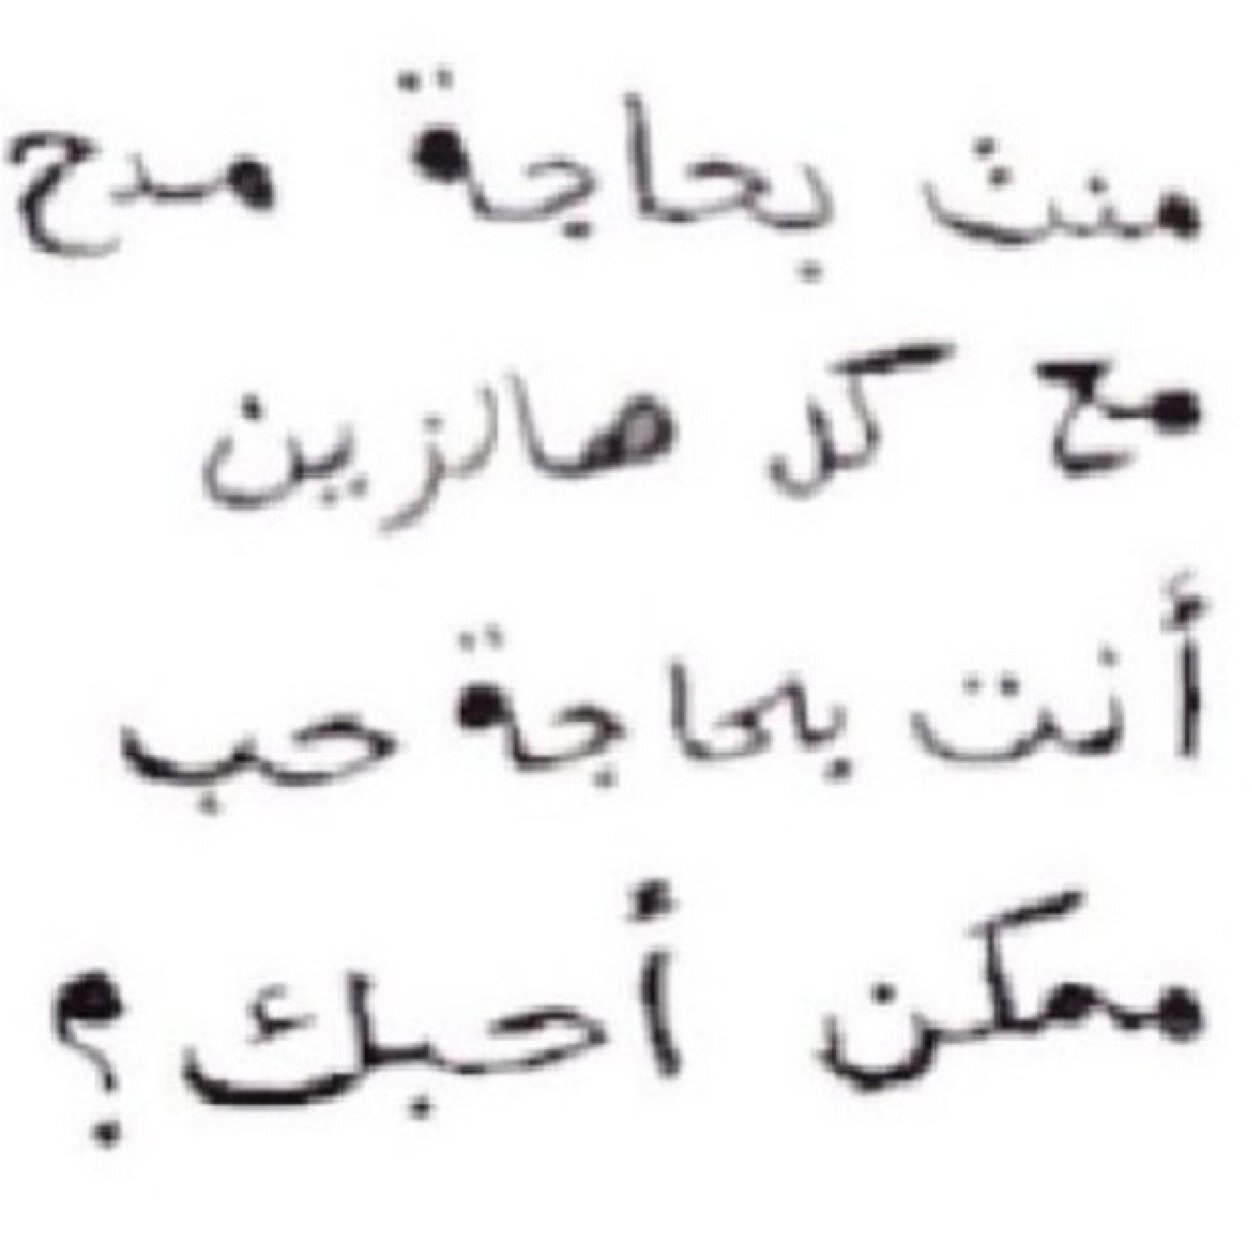 منت بحاجة مدح
مع كل هالزين
أنت بحاجة حب
ممكن أحبك؟